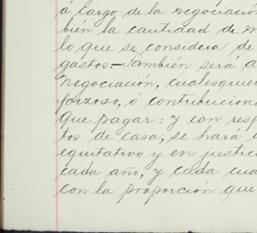 á cargo de la negociación
bién la cantidad de
lo que se considera de
gastos—También será á
negociación, cualesquier
forzoso, ó contribucione
que pagar: y con resp
tos de casa, se hará
equitativo y en justic
cada año, y cada cua
con la proporción que